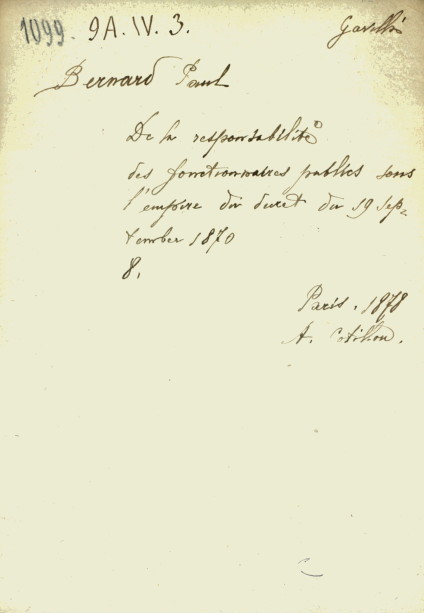 1099. 9A.IV.3.
Bernard Paul
De la responsabilité
des fonctionnaires publics sous
l'empire du decret du 19 Sep-
tember 1870
8.
Paris. 1878
A. Cotillon.